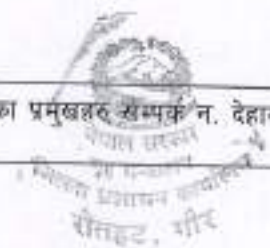 का प्रमुखहरु सम्पर्क न. देहा
नेपाल सरकार
जिल्ला प्रशासन कार्यालय
रौतहट, गौर